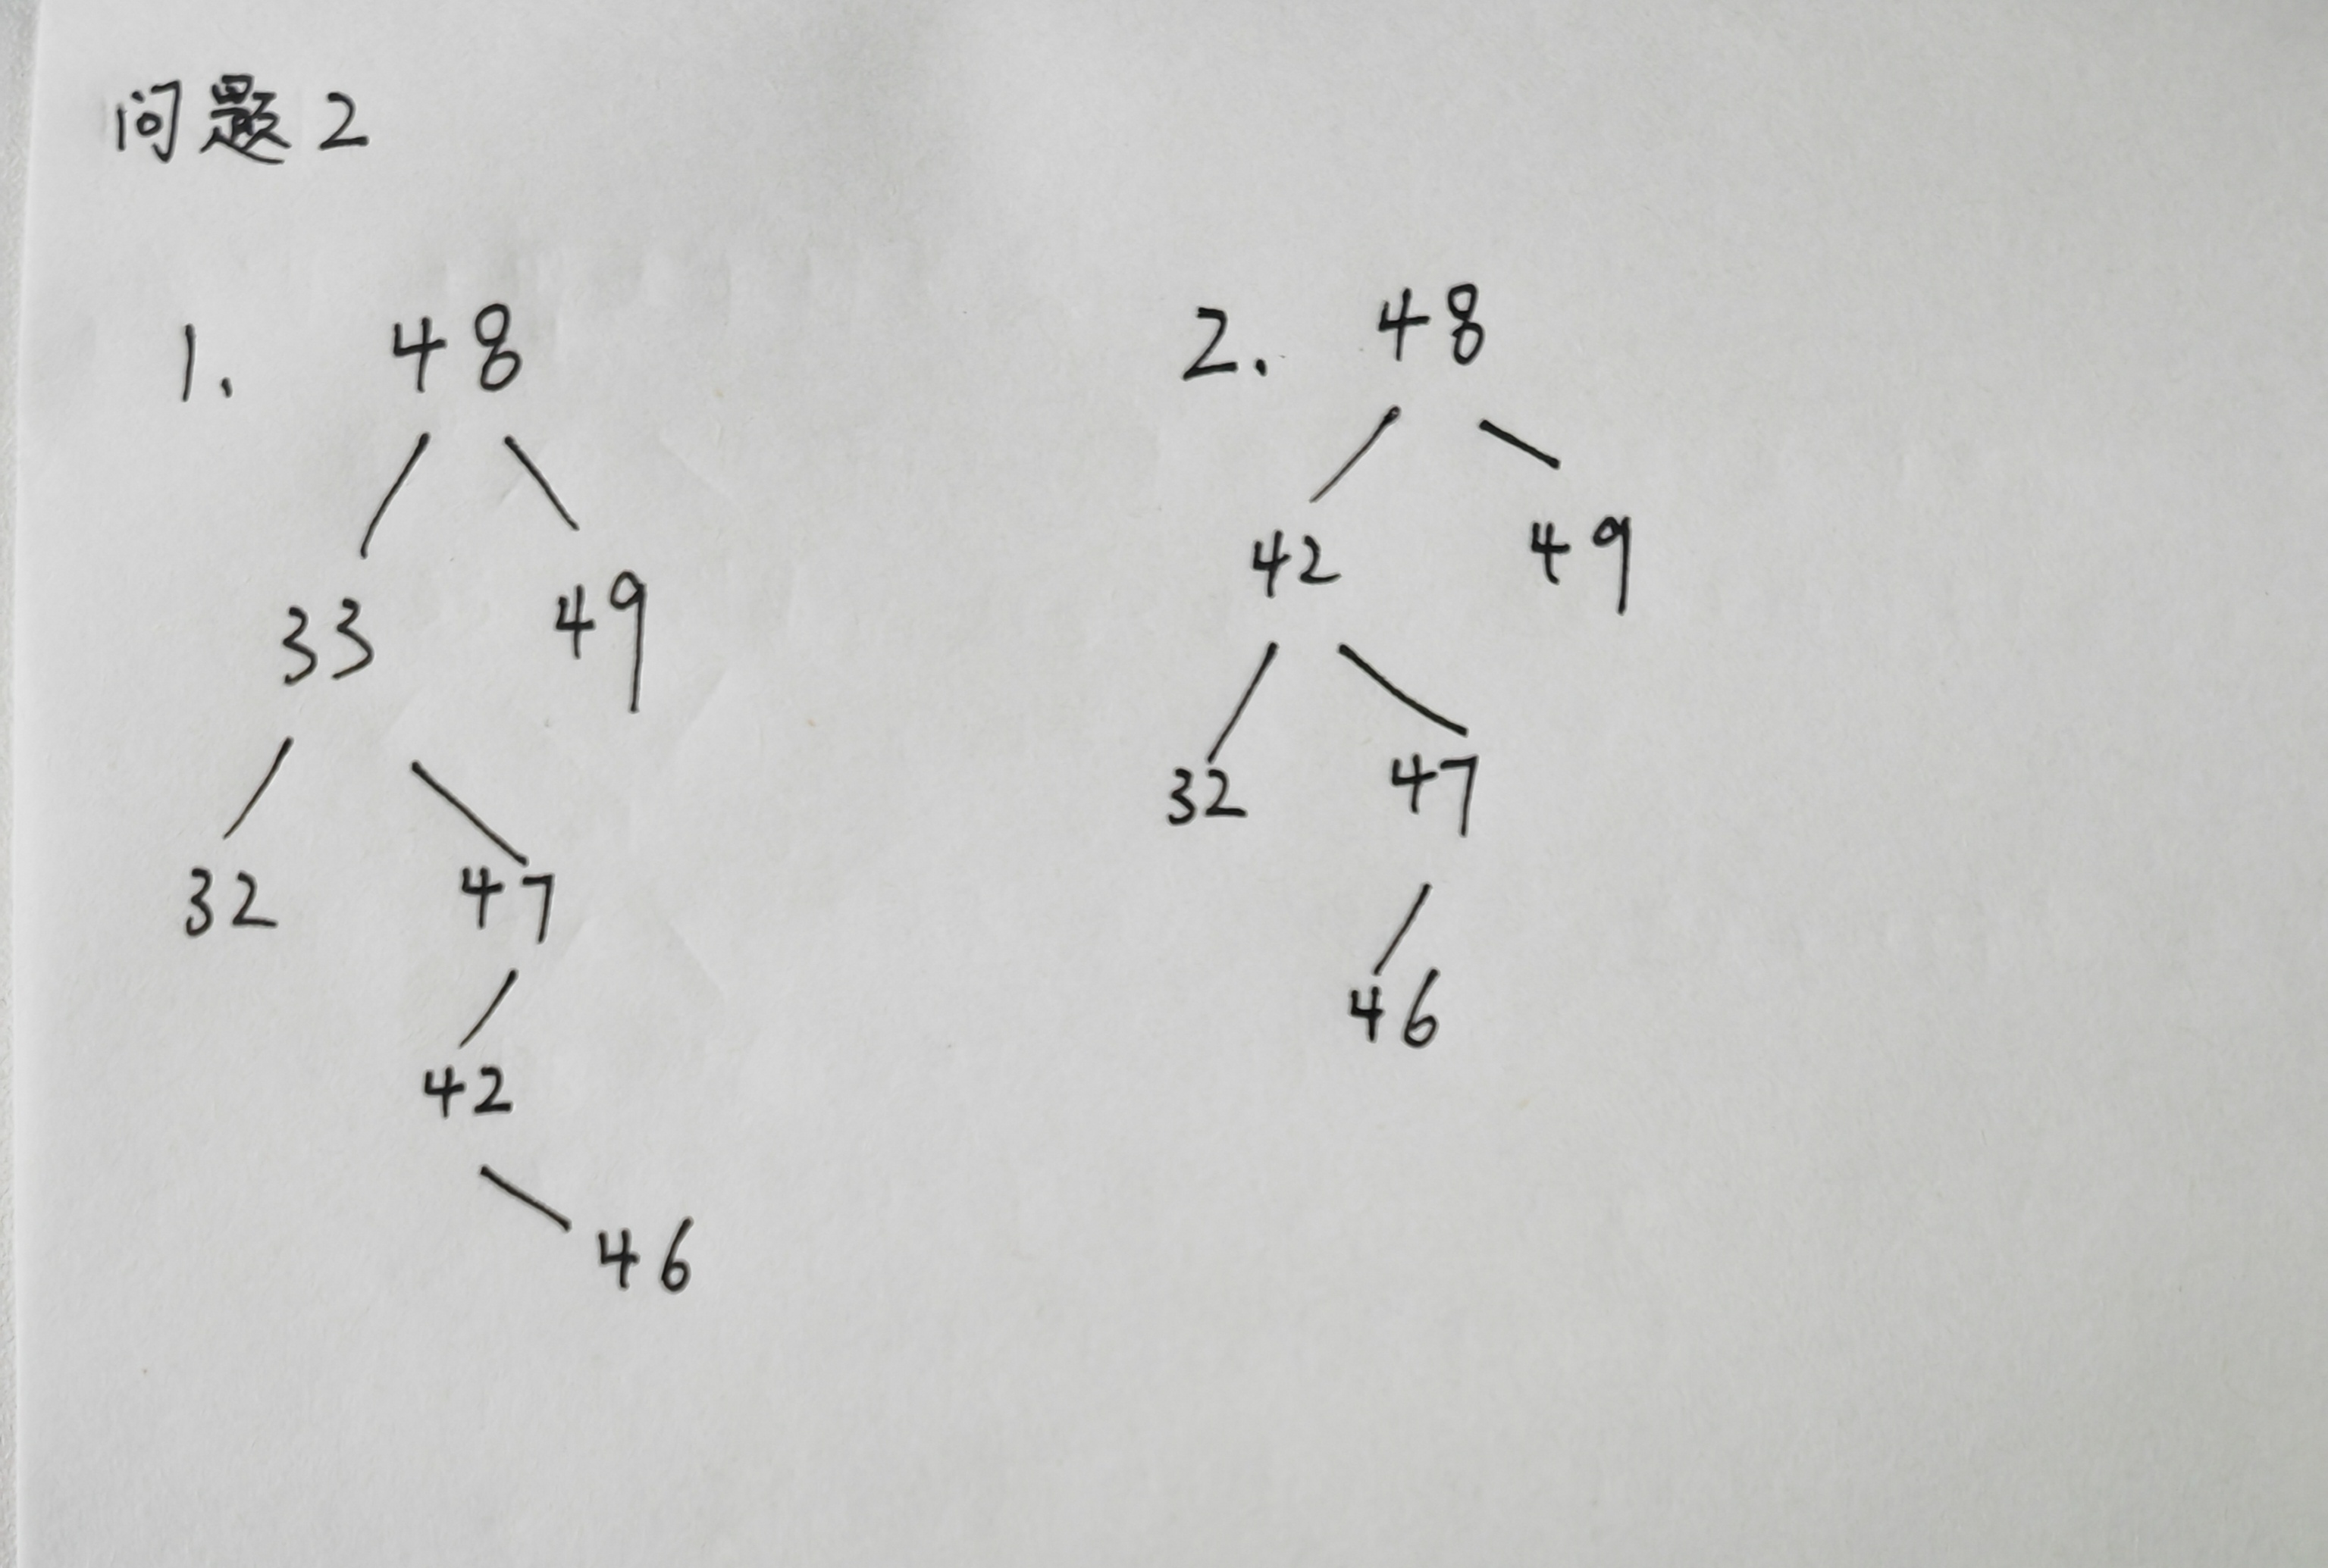 问题2
1. 48
33 49
32 47
42
46
2. 48
42 49
32 47
46